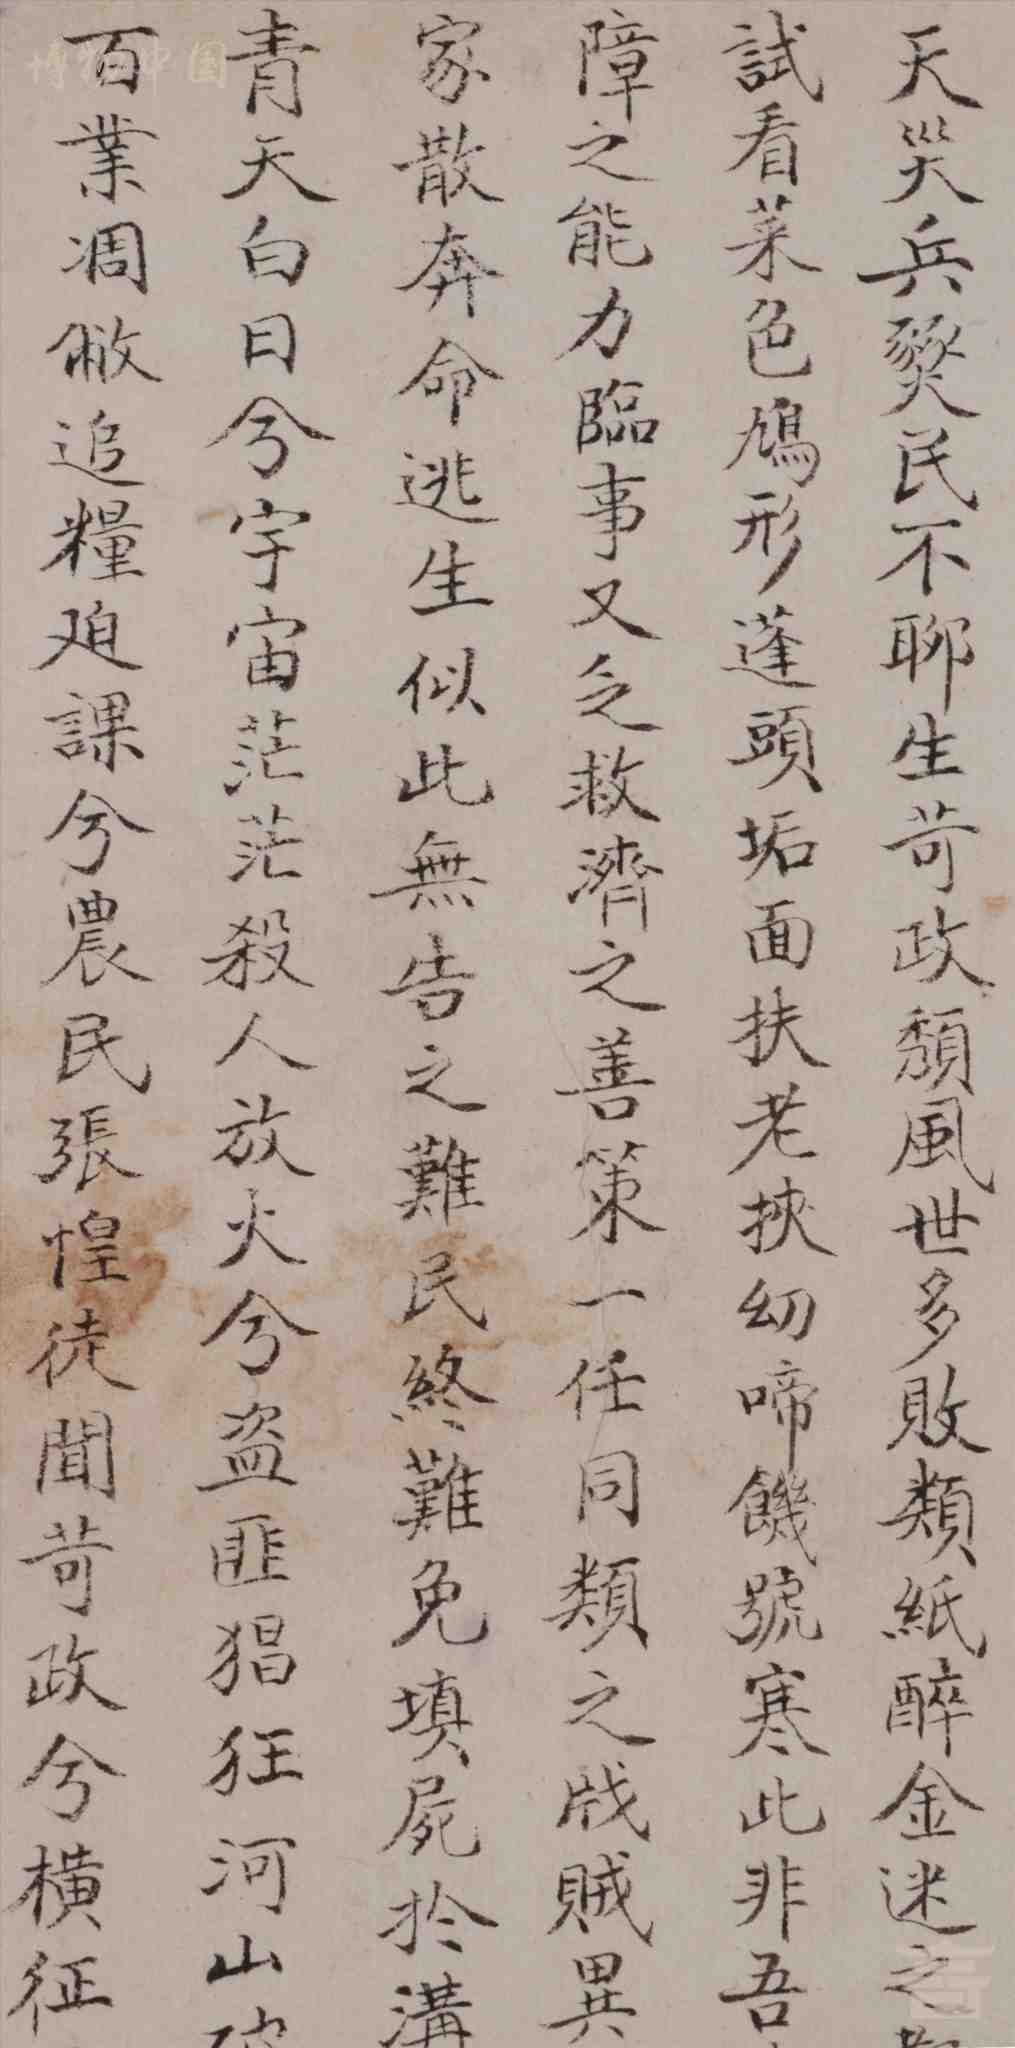 天災兵燹民不聊生苛政頹風世多敗類紙醉金迷之
試看菜色鳩形蓬頭垢面扶老挾幼啼饑號寒此非吾
障之能力臨事又乏救濟之善策一任同類之戕賊異
家散奔命逃生似此無告之難民終難免填屍於溝
青天白日兮宇宙茫茫殺人放火兮盜匪猖狂河山破
百業凋敝追糧迫課兮農民張惶徒聞苛政兮橫征
博物中国